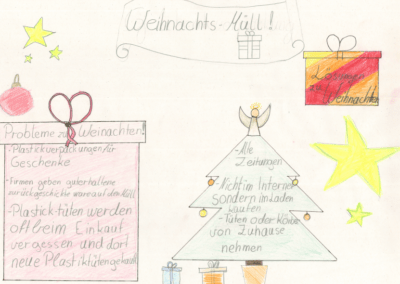 Weihnachts-Müll!
Lösungen
zu
Weihnachten
Probleme zu Weinachten!
-Plastikverpackungen für
Geschenke
-Firmen geben guterhaltene
zurückgeschickte ware auf den Müll
-Plastick tüten werden
oft beim Einkauf
vergessen und dort
neue Plastiktüten gekauft
-Alte
Zeitungen
-Nicht im Internet
sondern im Laden
kaufen
-Tüten oder Körbe
von Zuhause
nehmen